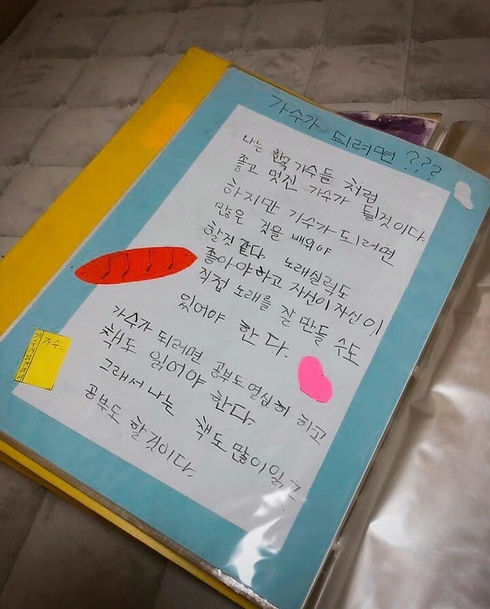 가수가 되려면 ???
나는 한국 가수들 처럼
좋고 멋진 가수가 될것이다
하지만 가수가 되려면
많은 것을 배워야
할것 같다. 노래실력도
좋아야하고 자신이 자신이
직접 노래를 잘 만들 수도
있어야 한다.
가수가 되려면 공부도 열심히 하고
책도 읽어야 한다.
그래서 나는 책도 많이 읽고
공부도 할것이다.
가수